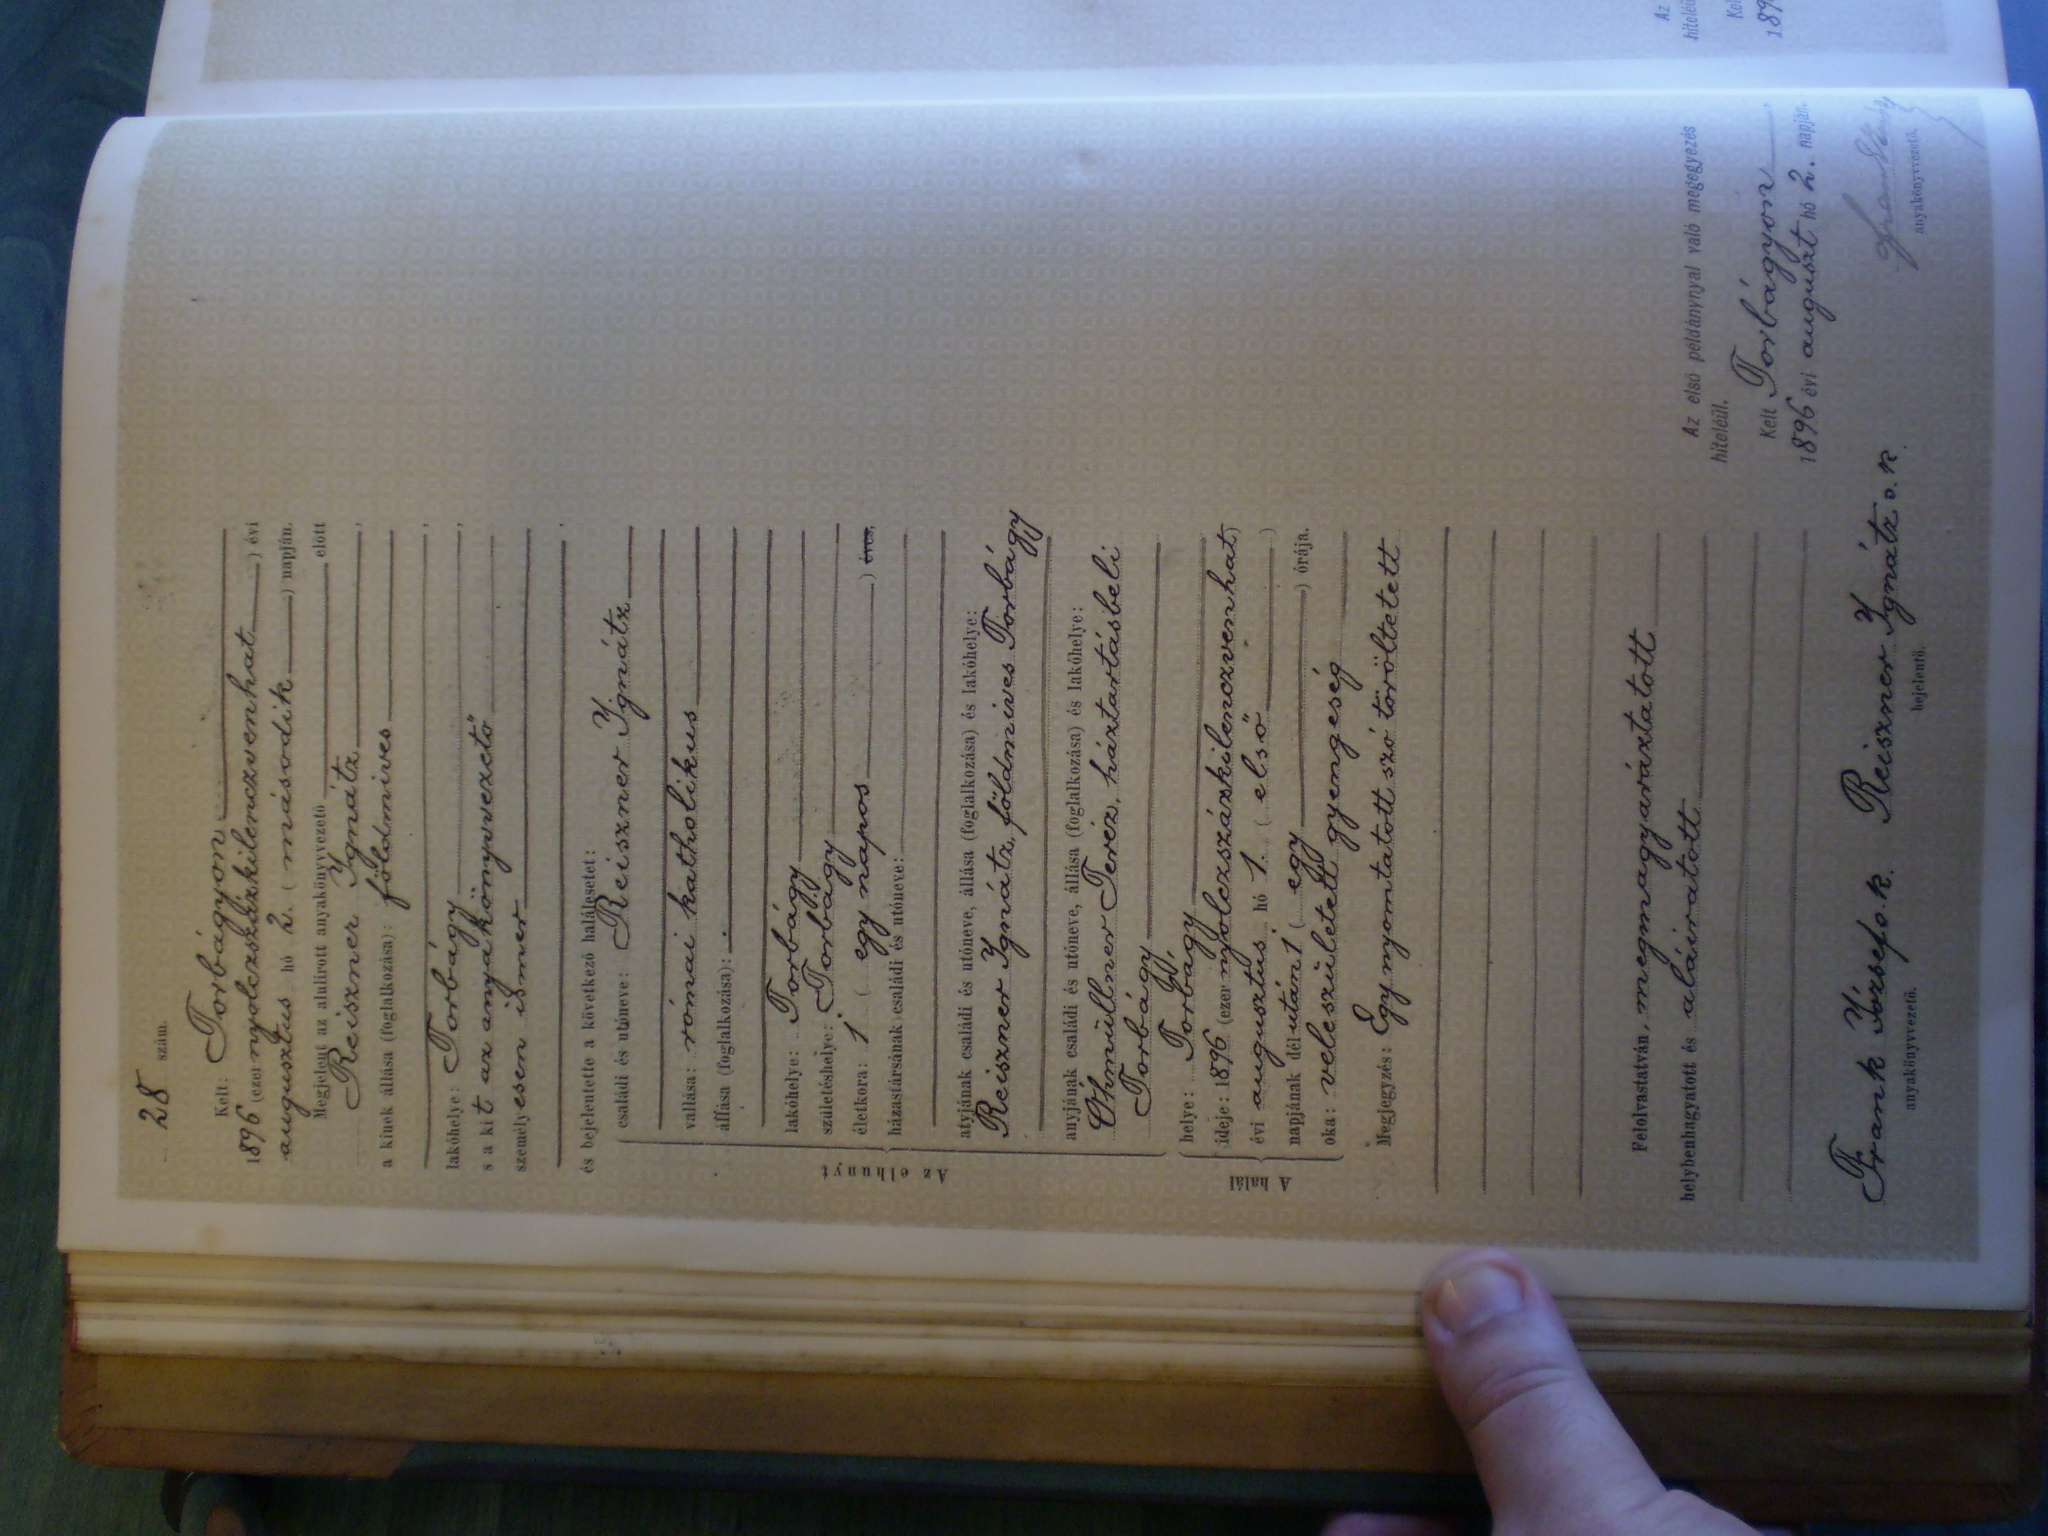 28 szám.
Kelt: Torbágyon
1896 (ezernyolczszázkilenczvenhat) évi
augusztus hó 2. (második) napján.
Megjelent az alulírott anyakönyvvezető előtt
Reiszner Ignátz,
a kinek állása (foglalkozása): földmives
lakóhelye: Torbágy,
s a kit az anyakönyvvezető
személyesen ismer,
és bejelentette a következő halálesetet:
Az elhunyt
családi és utóneve: Reiszner Ignátz
vallása: római katholikus
állása (foglalkozása):
lakóhelye: Torbágy
születéshelye: Torbágy
életkora: 1 (egy napos) éves,
házastársának családi és utóneve:
atyjának családi és utóneve, állása (foglalkozása) és lakóhelye:
Reiszner Ignátz, földmives Torbágy
anyjának családi és utóneve, állása (foglalkozása) és lakóhelye:
Ohmüllner Teréz, háztartásbeli
Torbágy
A halál
helye: Torbágy,
ideje: 1896 (ezernyolczszázkilenczvenhat)
évi augusztus hó 1. (első)
napjának délután 1 (egy) órája.
oka: veleszületett gyengeség
Megjegyzés: Egy nyomtatott szó töröltetett
Felolvastatván, megmagyaráztatott
helybenhagyatott és aláiratott
Frank József s. k. Reiszner Ignátz s. k.
anyakönyvvezető. bejelentő.
Az első példánynyal való megegyezés
hiteléül.
Kelt Torbágyon,
1896 évi auguszt hó 2. napján.
anyakönyvvezető.
Az
hiteléül
Kel
189